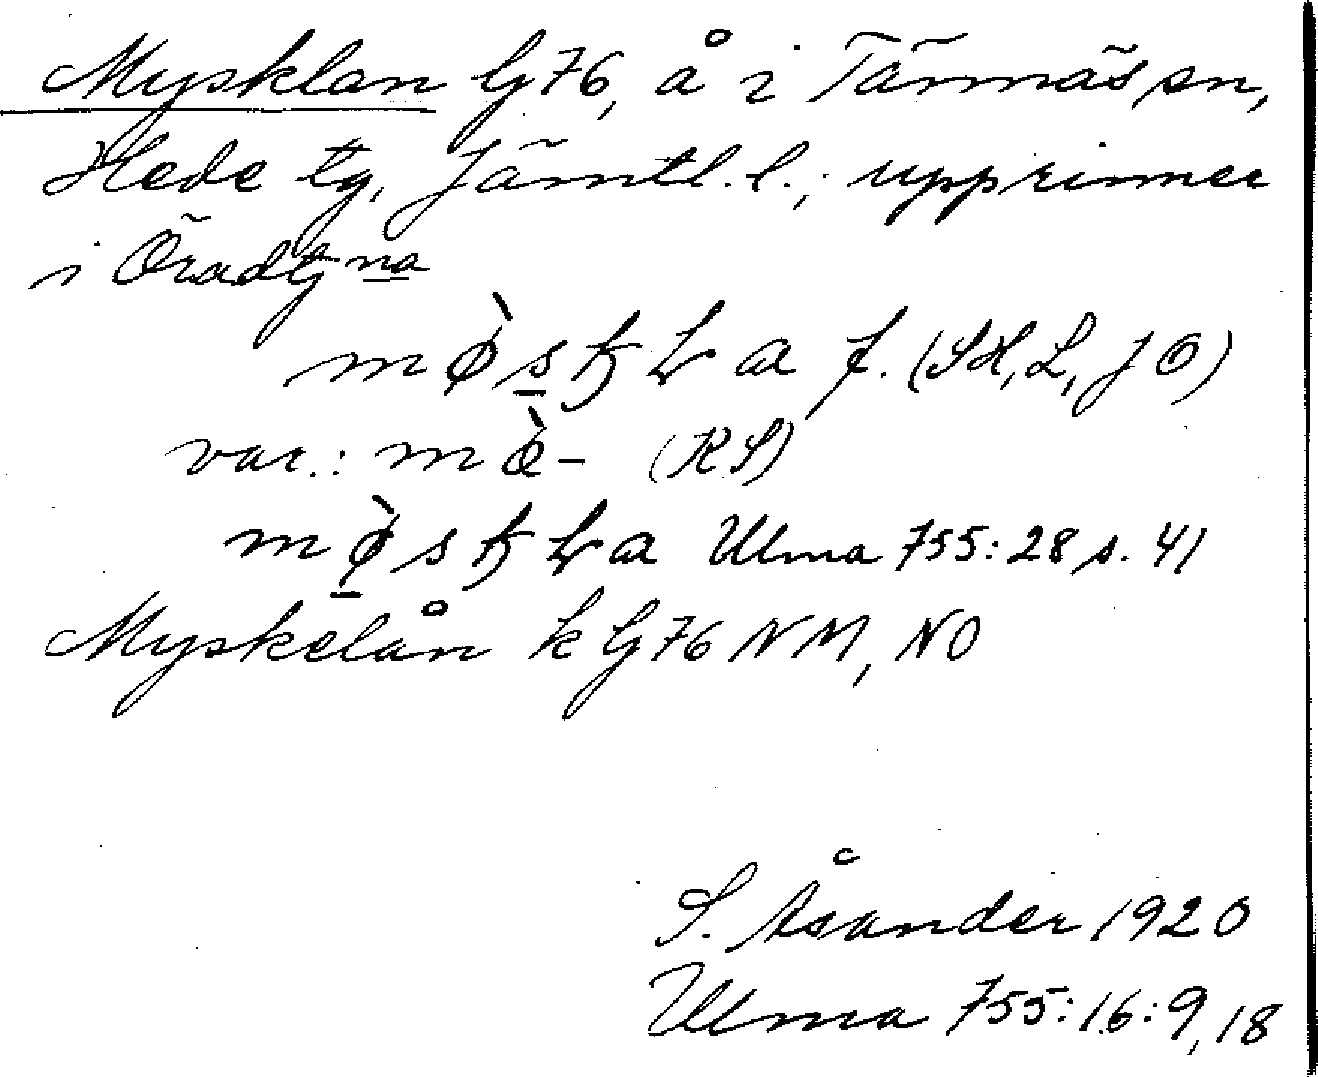 Mysklan G76, å i Tännäs sn,
Hede tg, Jämtl. l.; upprinner
i Öradtjna
f. (SH, L, JO)
var.: mö̀- (RS)
Ulma 755:28 s. 41
Myskelån k G76 NM, NO
S. Åsander 1920
Ulma 755:16:9,18